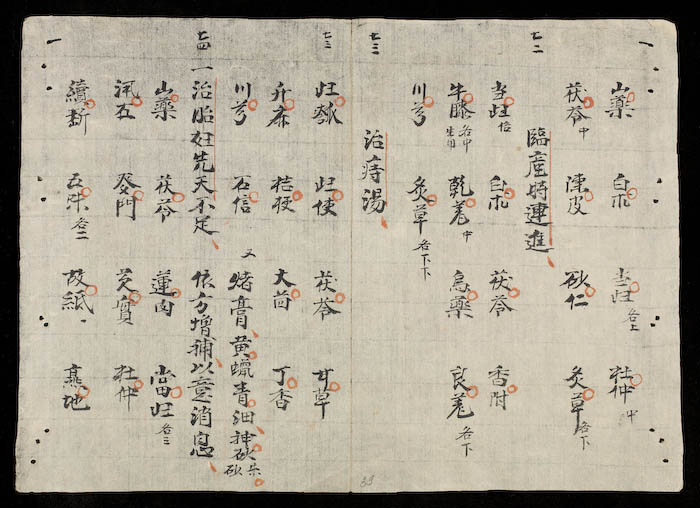 七二
山藥 白朮 當歸各上 杜仲中
茯苓中 陳皮 砂仁 炙草各下
臨産時連進
当歸倍 白朮 茯苓 香附
牛膝 乾姜中 烏藥 良姜各下
川芎 炙草各下下
七三
治痔湯
七三
茯苓 甘草
升麻 桔梗 大茴 丁香
川芎 石信 又 猪膏 黄蠟 青
七四
一治胎妊先天不足 依方增補以意消息
山藥 茯苓 蓮肉 當歸各三
門 芡實 杜仲
續斷 五味各二 故紙一 熟地
39